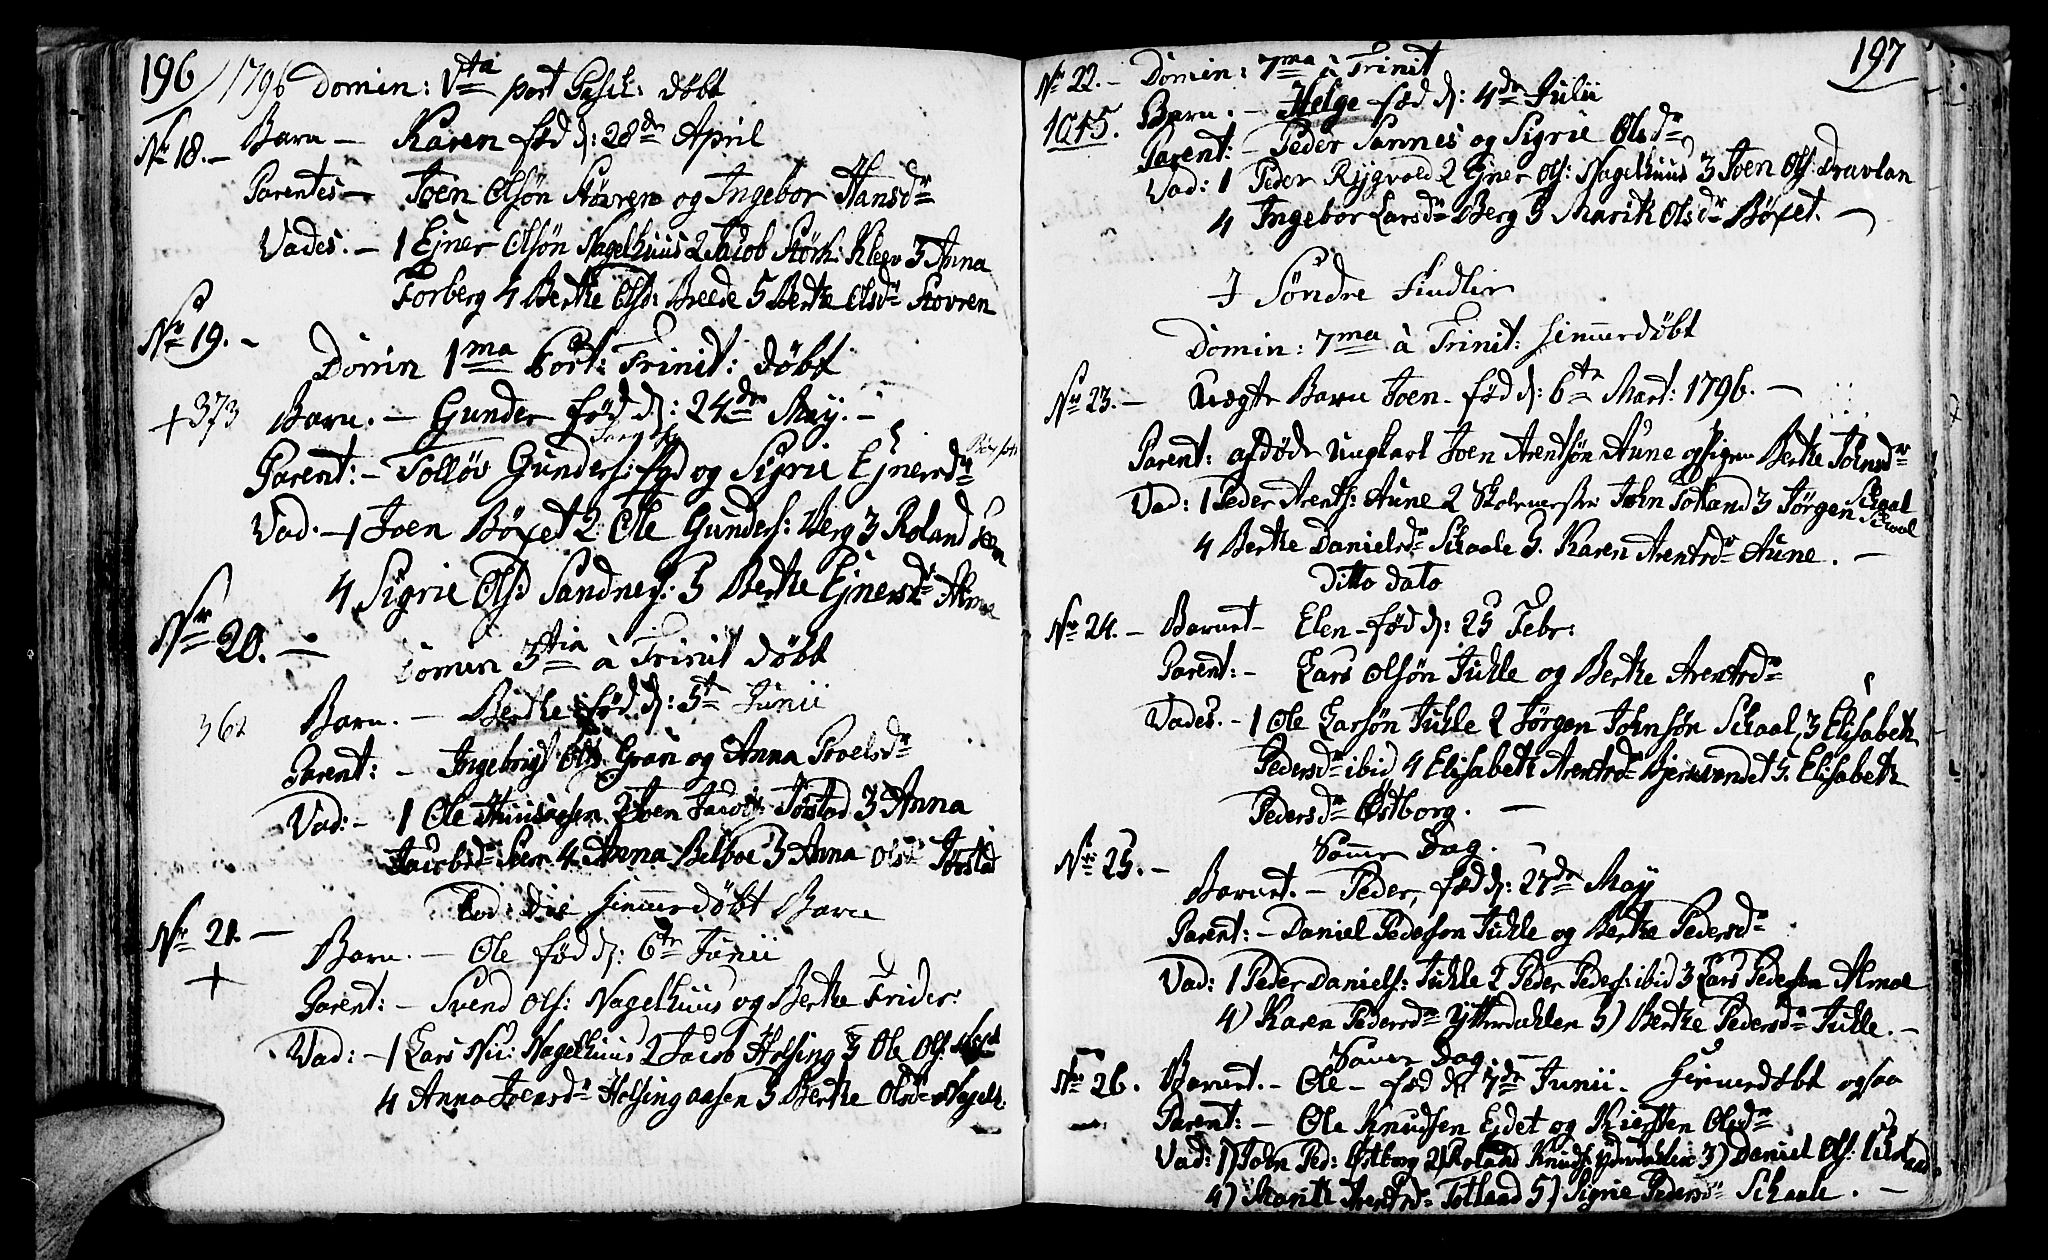 196
1796 Domin: Vta post Pasch: døbt
No 18. - Barn - Karen fød d: 28de April
Parentes - Joen Olsøn Støvren og Ingebor Hansdr
Vades. - 1 Ejner Olsøn Nagelhuus 2 Jacob Størk: Kleev 3 Anna
Forberg 4 Berthe Ols: Breede 5 Berthe Olsdr Stovren
No 19. -
Domin 1ma Post: Trinit: døbt
+ 373 Barn. - Gunder fød d: 24de Maÿ. -
Parent: - Tolløv Gunders: og Sigrie Ejnersdr
Vad. - 1 Joen Bøxet 2 Ole Gunders: Berg 3 Roland Seem
4 Sigrie Olsd Sandnes: 5 Berthe Ejnersdr Almoe
Nr 20. -
Domin 3tia à Trinit døbt
362 Barn. - Berthe fød d: 5te Junii
Parent: - Ingebrigt Ols: Gran og Anna Poelsdr
Vad: - 1 Ole 2 Joen Jacobs: Jørstad 3 Anna
Jacobsdr Seem 4 Anna Belboe 5 Anna Olsdr Jørstad
Eod: die hiemmedøbt Barn
Nr 21. -
+ Barn. - Ole fød d: 6te Junii
Parent: - Svend Ols: Nagelhuus og Berthe Frider:
Vad: - 1 Lars Nic: Nagelhuus 2 Jacob Holsing 3 Ole Ols:
4 Anna Joensdr Holsingaasen 5 Berthe Olsdr Nagelh:
197
No 22. - Domin: 7ma à Trinit
1015. Barn. - Helge fød d: 4de Julii
Parent: - Peder Sannes og Sigrie Olsdr
Vad: 1 Peder Rygvold 2 Ejner Ols: Nagelhuus 3 Joen Ols: Dravlan
4 Ingebor Larsdr Berg 5 Marith Olsdr Bøxet. -
I Søndre Findlier
Domin: 7ma à Trinit: hiemmedøbt
No 23. - Uægte Barn Joen - fød d: 6te Mart: 1796. -
Parent: afdøde ungkarl Joen Arentsøn Aune og pigen Berthe Joensdr
Vad: 1 Peder Arents: Aune 2 Skolemester John Totland 3 Jørgen Schaal
Schaal
4 Berthe Danielsdr Schaale 5. Karen Arentsdr Aune. -
Ditto dato
No 24. - Barnet - Elen - fød d: 25 Febr:
Parent: - Lars Olsøn Juhle og Berthe Arentsdr
Vades. - 1 Ole Larsøn Juhle 2 Jørgen Johnsøn Schaal, 3 Elisabeth
Pedersdr ibid 4 Elisabeth Arentsdr Bjerkvendet 5. Elisabeth
Pedersdr Østborg. -
Samme Dag. -
No 25. -
Barnet. - Peder, fød d: 27de Maÿ
Parent: - Daniel Pedersøn Juhle og Berthe Pedersdr
Vad: 1 Peder Daniels: Juhle 2 Peder Peders: ibid 3 Lars Pedersen Almoe
4) Karen Pedersdr Ytterdahlen 5) Berthe Pedersdr Juhle. -
Samme Dag. -
No 26. Barnet. - Ole - fød d: 7de Junii - hiemmedøbt ogsaa
Parent: - Ole Knudsen Ejdet og Kiersten Olsdr
Vad: 1) John Ped: Østborg 2) Roland Knuds: Ytterdahlen 3) Daniel Ols:
4) Marith Arentsdr Totland 5) Sigrie Pedersdr Schaale. -